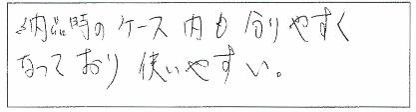 納品時のケース内も分りやすく
なっており使いやすい。